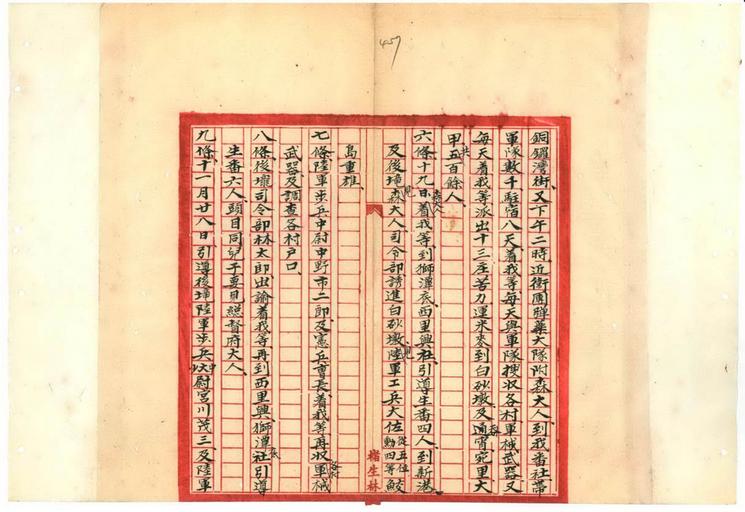 457
銅鑼灣街、又下午二時、近衛團彈藥大隊附森大人、到我番社帶
軍隊數千、駐宿八天、着我等每天與軍隊搜收各村軍械武器、又
每天着我等派出十三庄苦力運米麥到白砂墩、及通霄、宛里、大
甲、共五百餘人、
六條、十九日、森大人着我等到獅潭底、西里興社、引導生番四人、到新港、
及後壠見森大人、司令部誘進白砂墩、見陸軍工兵大佐從五位勳四等鮫
島重雄、
七條、陸軍步兵中尉中野市二郎、及憲兵曹長、着我等再收各村軍械
武器及調查各村戶口、
八條、後壠司令部林太郎出諭着我等再到西里興、獅潭底社、引導
生番六人、頭目同兒子要見總督府大人、
九條、十一月廿八日、引導後壠陸軍步兵中尉宮川茂三及陸軍
生林